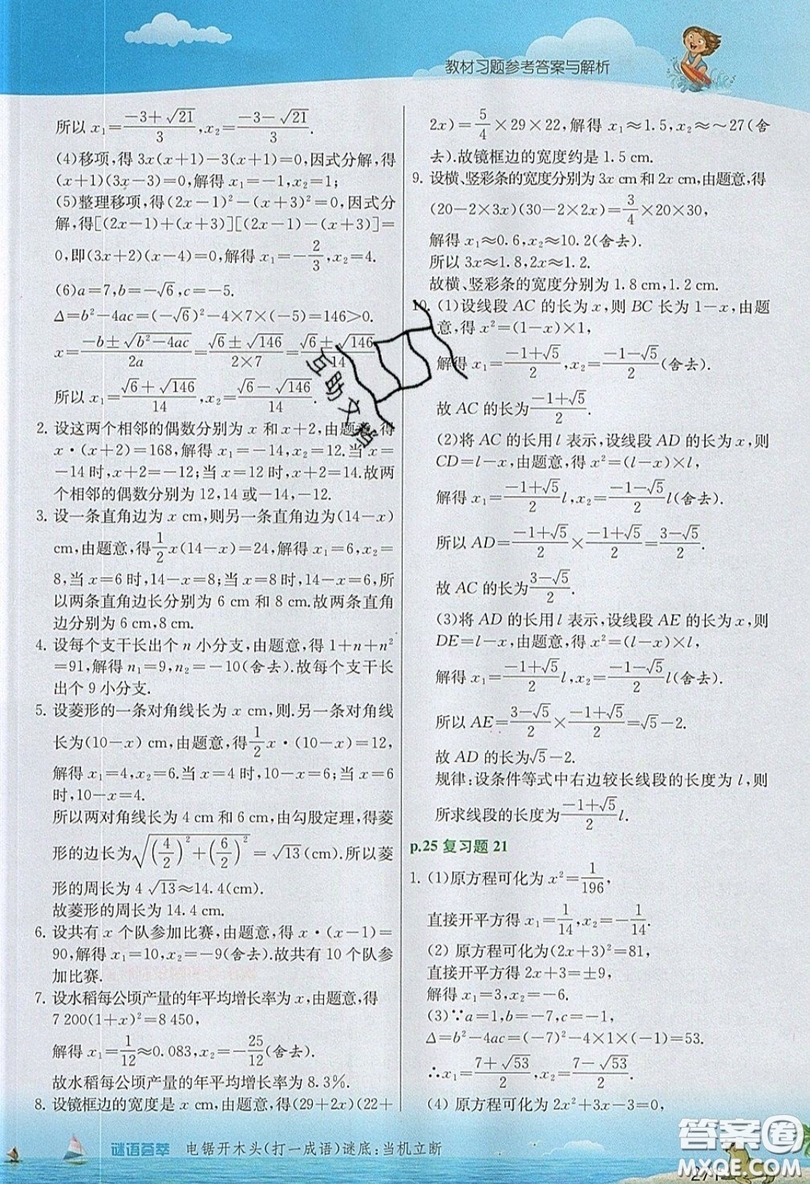 教材习题参考答案与解析
所以 x₁=(-3+√21)/3,x₂=(-3-√21)/3.
(4)移项,得 3x(x+1)-3(x+1)=0,因式分解,得
(x+1)(3x-3)=0,解得 x₁=-1,x₂=1;
(5)整理移项,得(2x-1)²-(x+3)²=0,因式分
解,得[(2x-1)+(x+3)][(2x-1)-(x+3)]=
0,即(3x+2)(x-4)=0,解得 x₁=-2/3,x₂=4.
(6)a=7,b=-√6,c=-5.
Δ=b²-4ac=(-√6)²-4×7×(-5)=146>0.
x=(-b±√(b²-4ac))/2a=(√6±√146)/(2×7)=(√6±√146)/14
所以 x₁=(√6+√146)/14,x₂=(√6-√146)/14.
2. 设这两个相邻的偶数分别为 x 和 x+2,由题意,得
x·(x+2)=168,解得 x₁=-14,x₂=12.当 x=
-14 时,x+2=-12;当 x=12 时,x+2=14.故两
个相邻的偶数分别为 12,14 或-14,-12.
3. 设一条直角边为 x cm,则另一条直角边为(14-x)
cm,由题意,得1/2x(14-x)=24,解得 x₁=6,x₂=
8,当 x=6 时,14-x=8;当 x=8 时,14-x=6,所
以两条直角边长分别为 6 cm 和 8 cm.故两条直角
边分别为 6 cm,8 cm.
4. 设每个支干长出个 n 小分支,由题意,得 1+n+n²
=91,解得 n₁=9,n₂=-10(舍去).故每个支干长
出个 9 小分支.
5. 设菱形的一条对角线长为 x cm,则.另一条对角线
长为(10-x) cm,由题意,得1/2x·(10-x)=12,
解得 x₁=4,x₂=6.当 x=4 时,10-x=6;当 x=6
时,10-x=4.
所以两对角线长为 4 cm 和 6 cm,由勾股定理,得菱
形的边长为√((4/2)²+(6/2)²)=√13(cm).所以菱
形的周长为 4√13≈14.4(cm).
故菱形的周长为 14.4 cm.
6. 设共有 x 个队参加比赛,由题意,得 x·(x-1)=
90,解得 x₁=10,x₂=-9(舍去).故共有 10 个队参
加比赛.
7. 设水稻每公顷产量的年平均增长率为 x,由题意,得
7 200(1+x)²=8 450,
解得 x₁=1/12≈0.083,x₂=-25/12(舍去).
故水稻每公顷产量的年平均增长率为 8.3%.
8. 设镜框边的宽度是 x cm,由题意,得(29+2x)(22+
2x)=5/4×29×22,解得 x₁≈1.5,x₂≈~27(舍
去).故镜框边的宽度约是 1.5 cm.
9. 设横、竖彩条的宽度分别为 3x cm 和 2x cm,由题意,得
(20-2×3x)(30-2×2x)=3/4×20×30,
解得 x₁≈0.6,x₂≈10.2(舍去).
所以 3x≈1.8,2x≈1.2.
故横、竖彩条的宽度分别为 1.8 cm,1.2 cm.
10. (1)设线段 AC 的长为 x,则 BC 长为 1-x,由题
意,得 x²=(1-x)×1,
解得 x₁=(-1+√5)/2,x₂=(-1-√5)/2(舍去).
故 AC 的长为(-1+√5)/2.
(2)将 AC 的长用 l 表示,设线段 AD 的长为 x,则
CD=l-x,由题意,得 x²=(l-x)×l,
解得 x₁=(-1+√5)/2 l,x₂=(-1-√5)/2 l(舍去).
所以 AD=(-1+√5)/2×(-1+√5)/2=(3-√5)/2.
故 AC 的长为(3-√5)/2.
(3)将 AD 的长用 l 表示,设线段 AE 的长为 x,则
DE=l-x,由题意,得 x²=(l-x)×l,
解得 x₁=(-1+√5)/2 l,x₂=(-1-√5)/2 l(舍去).
所以 AE=(3-√5)/2×(-1+√5)/2=√5-2.
故 AD 的长为√5-2.
规律:设条件等式中右边较长线段的长度为 l,则
所求线段的长度为(-1+√5)/2 l.
p.25 复习题 21
1. (1)原方程可化为 x²=1/196,
直接开平方得 x₁=1/14,x₂=-1/14.
(2) 原方程可化为(2x+3)²=81,
直接开平方得 2x+3=±9,
解得 x₁=3,x₂=-6.
(3)∵a=1,b=-7,c=-1,
Δ=b²-4ac=(-7)²-4×1×(-1)=53.
∴x₁=(7+√53)/2,x₂=(7-√53)/2.
(4) 原方程可化为 2x²+3x-3=0
谜语荟萃 电锯开木头(打一成语)谜底:当机立断
互助文档
答案圈